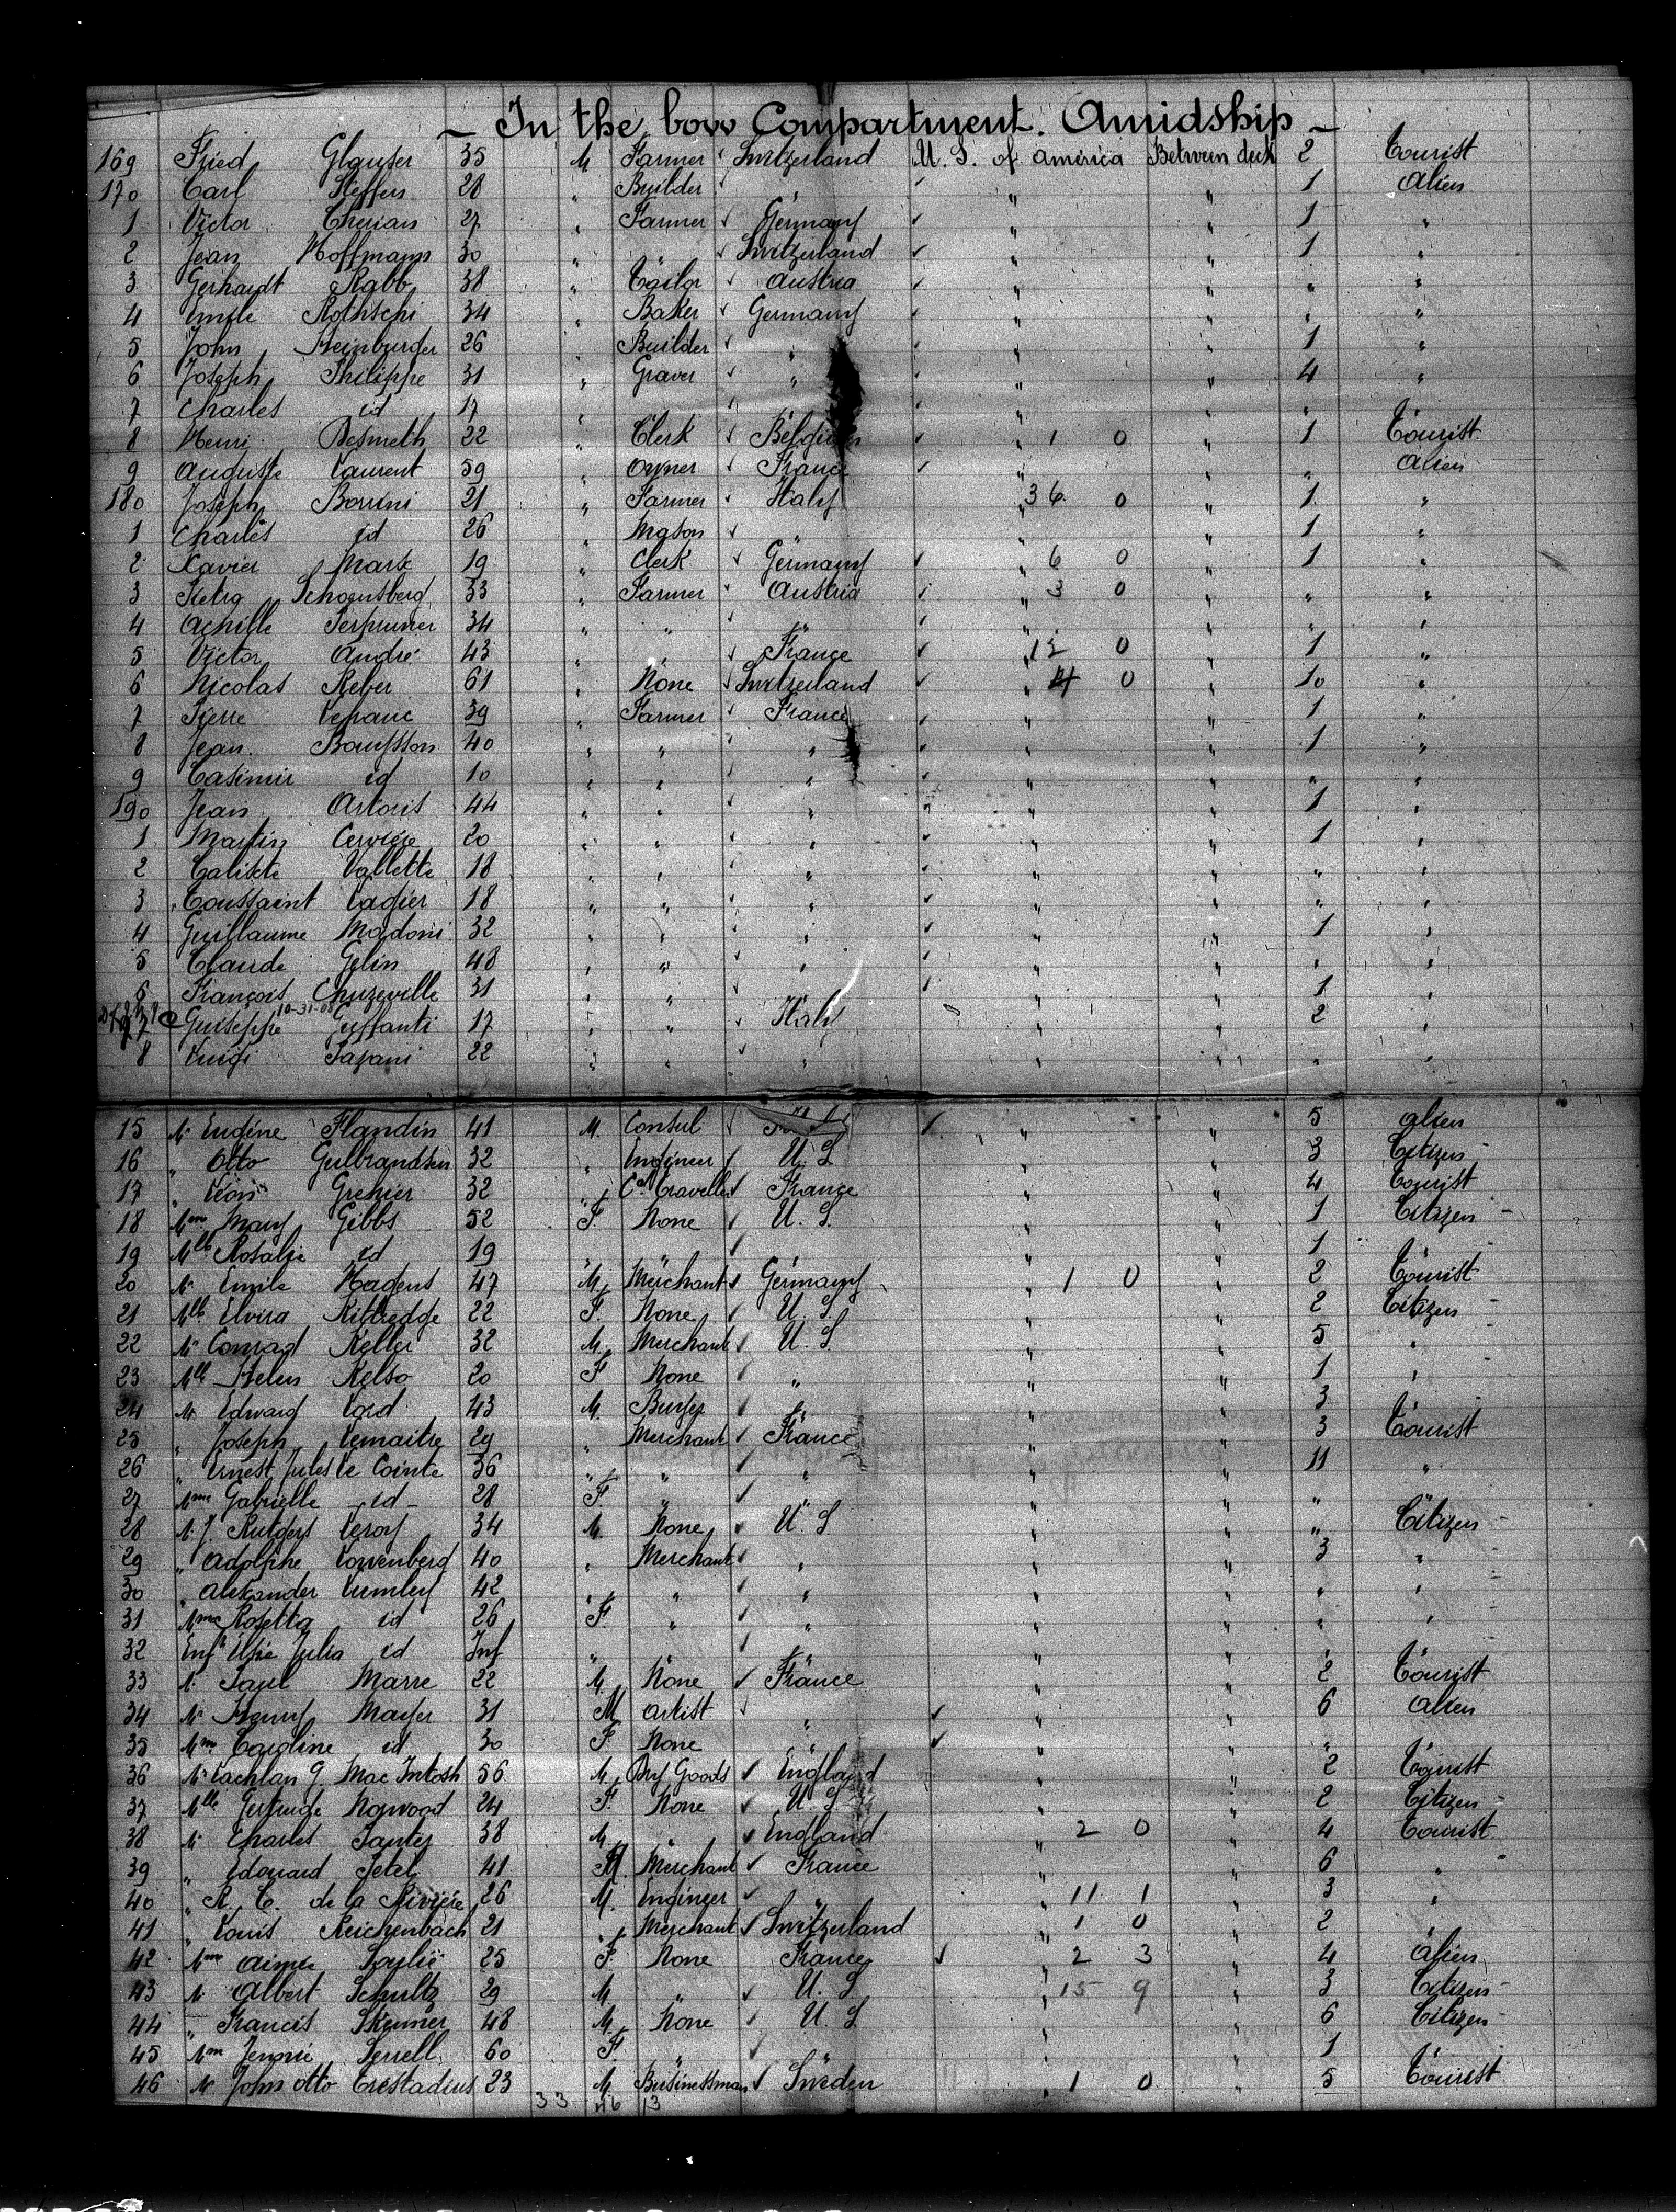 ~ In the bow Compartment. Amidship ~
169 Fried Glauser 35 M. Farmer Switzerland U. S. of america Between deck 2 Tourist
170 Carl Steffen 28 " Builder " " " 1 alien
1 Victor 27 " Farmer Germany " " 1 "
2 Jean Hoffmann 30 " " Switzerland " " 1 "
3 Gerhardt Rabb 38 " Tailor austria " " " "
4 Emile Rothschi 34 " Baker Germany " " " "
5 John 26 " Builder " " " 1 "
6 Joseph Philippe 31 " Graver " " " 4 "
7 Charles id 17 " " " " " " "
8 Henri Desmeth 22 " Clerk Belgium " 1 0 " 1 Tourist
9 auguste Laurent 59 " owner France " " " alien
180 Joseph Borrini 21 " Farmer Italy 36 0 " 1 "
1 Charles id 26 " Mason " " " 1 "
2 Xavier Mark 19 " Clerk Germany " 6 0 " 1 "
3 33 " Farmer austria " 3 0 " " "
4 achille 34 " " " " " " "
5 Victor andré 43 " " France 12 0 " 1 "
6 Nicolas Reber 61 " None Switzerland " 0 " 10 "
7 Pierre Lefranc 39 " Farmer France " " 1 "
8 Jean Bouysson 40 " " " " " 1 "
9 Casimir id 10 " " " " " " "
190 Jean artoris 44 " " " " " 1 "
1 Martin Cervière 20 " " " " " 1 "
2 Calixte Vallette 18 " " " " " " "
3 Toussaint Lagier 18 " " " " " " "
4 Guillaume Madoni 32 " " " " " 1 "
5 Claude Gelin 48 " " " " " " "
6 François Chuzeville 31 " " " " " 1 "
197 Guiseppe 10-31-08 Giffanti 17 " " Italy " " 2 "
8 Luigi Papani 22 " " " " " " "
15 Mr Eugène Flandin 41 M. Consul " " 5 alien
16 " Otto Gulbrandsen 32 " Engineer U. S " " 3 Citizen -
17 " Léon Grenier 32 " Cal Traveller France " " 4 Tourist
18 Mme Mary Gibbs 52 F. None U. S. " " 1 Citizen -
19 Mlle Rosalie id 19 " " " " " 1 "
20 Mr Emile Hagens 47 M. Merchant Germany 1 0 " 2 Tourist
21 Mlle Elvira Kittredge 22 F. None U. S. " " 2 Citizen -
22 Mr Conrad Keller 32 M. Merchant U. S. " " 5 "
23 Mlle Helen Kelso 20 F None " " " 1 "
24 Mr Edward Lord 43 M. Buyer " " " 3 "
25 " Joseph Lemaitre 29 " Merchant France " " 3 Tourist
26 " Ernest Jules Le Cointe 36 " " " " " 11 "
27 Mme Gabrielle - id - 28 F. " " " " " "
28 Mr J. Rutgers Leroy 34 M. None U. S " " " Citizen -
29 " adolphe Lowenberg 40 " Merchant " " " 3 "
30 " alexander Lumley 42 " " " " " " "
31 Mme Rosetta id 26 F. " " " " " "
32 Enft Elsie Julia id Inf " " " " " " "
33 Mr Paul Marre 22 M. None France " " 2 Tourist
34 Mr Henry Mayer 31 M artist " " " 6 alien
35 Mme Caroline id 30 F None " " " " "
36 Mr Lachlan G. Mac Intosh 56 M. Dry Goods England " " 2 Tourist
37 Mlle Gertrude Norwood 24 F. None U. S " " 2 Citizen -
38 Mr Charles 38 M. " England " 2 0 " 4 Tourist
39 " Edouard Petel 41 M Merchant France " " 6 "
40 " R. C. de la Rivière 26 M. Engineer " " 11 1 " 3 "
41 " Louis Reichenbach 21 " Merchant Switzerland " 1 0 " 2 "
42 Mme aimée 25 F. None France " 2 3 " 4 alien
43 Mr albert Schultz 29 M. " U. S " 15 9 " 3 Citizen -
44 " Francis Skinner 48 M. None U. S " " 6 Citizen -
45 Mme Jennie 60 F. " " " " 1 "
46 Mr John otto Trestadius 23 M. Businessman Sweden " 1 0 " 5 Tourist
33 46 13